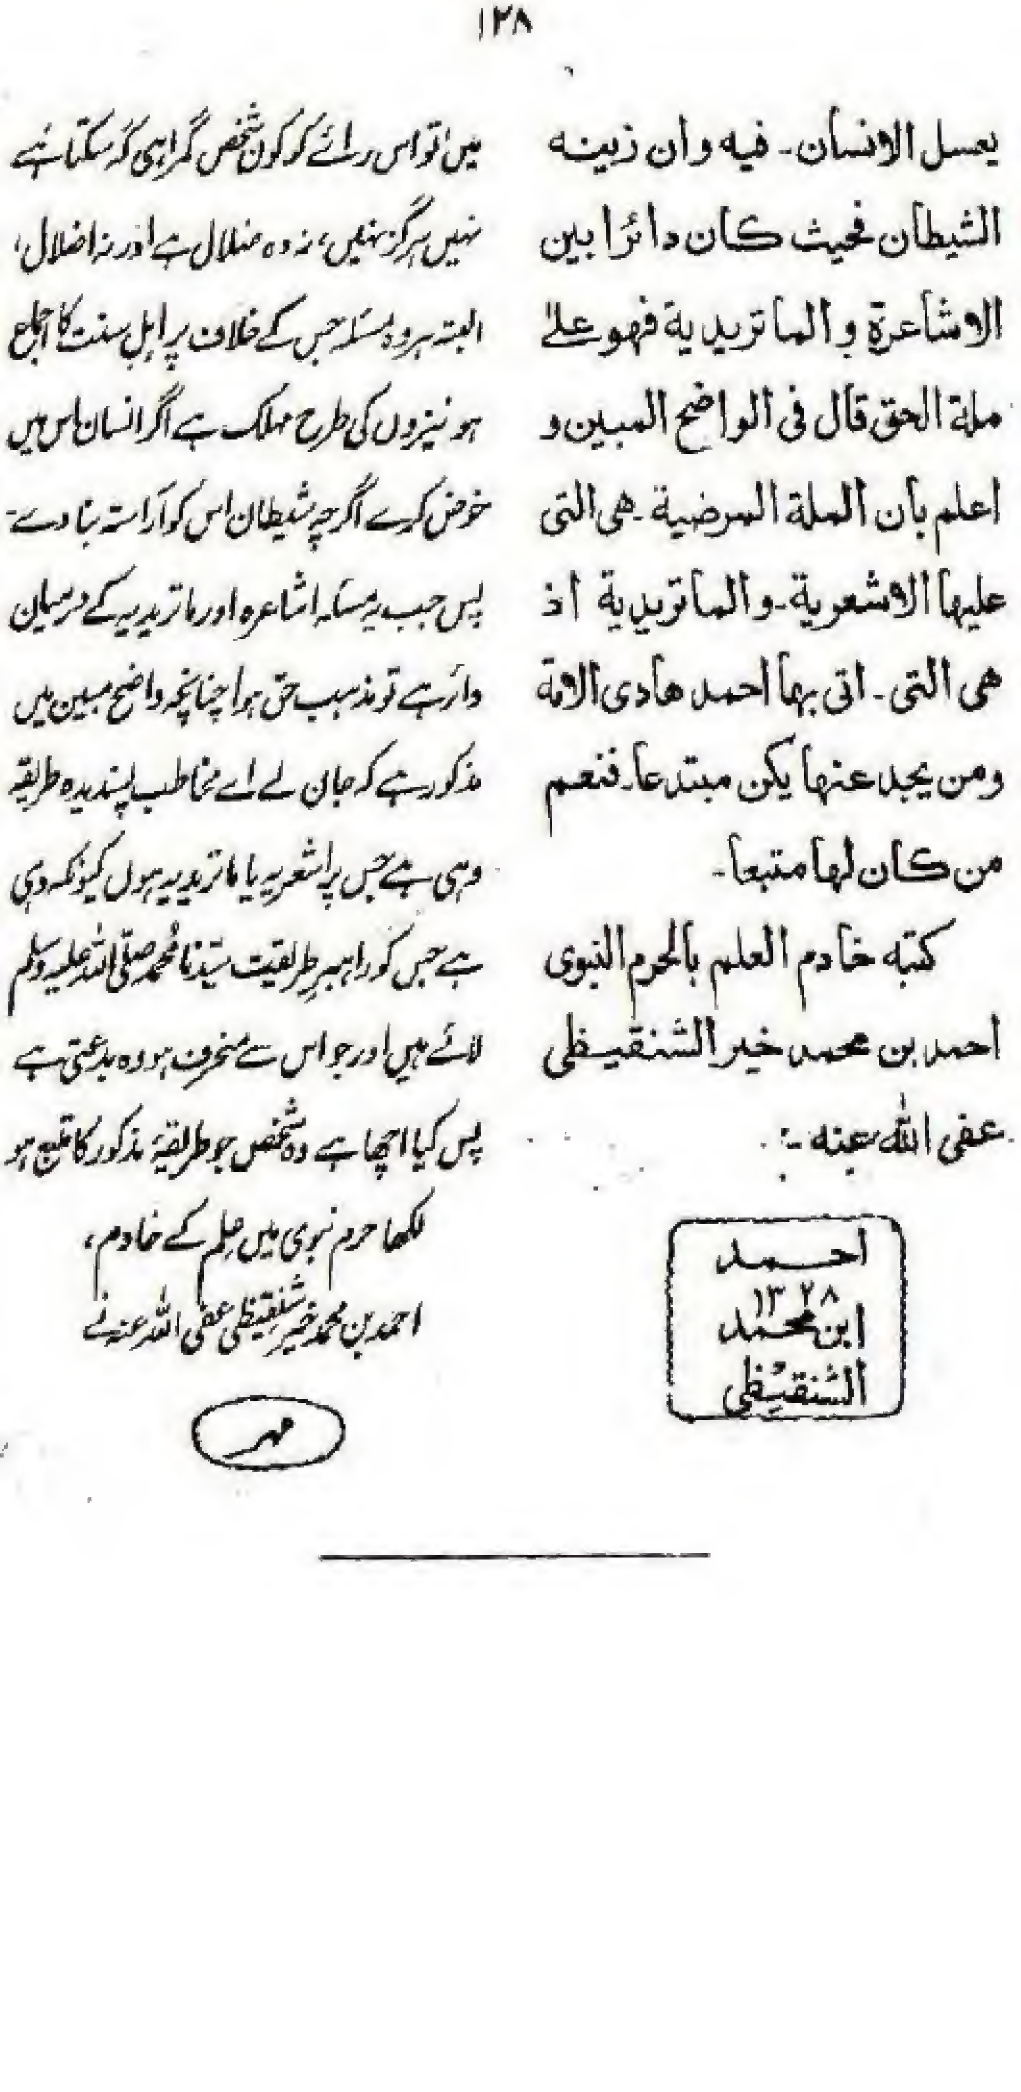 ۱۲۸
يعسل الانسان۔ فيه وان زينه
الشيطان فحيث كان دائرا بين
الاشاعرة والماتريدية فهو علىٰ
ملة الحق قال فى الواضح المبين و
اعلم بأن الملة المرضية۔ هى التى
عليها الاشعرية۔ والماتريدية اذ
هى التى۔ اتى بها احمد هادى الامة
ومن يحد عنها يكن مبتدعا۔ فنعم
من كان لها متبعا۔
كتبه خادم العلم بالحرم النبوى
احمد بن محمد خير الشنقيطى
عفى الله عنه ؞
احمد
۱۳۲۸
ابن محمد
الشنقيطى
میں تو اس رائے کو کون شخص گمراہی کہہ سکتا ہے
نہیں ہرگز نہیں، نہ وہ ضلال ہے اور نہ اضلال،
البتہ ہر وہ مسئلہ جس کے خلاف پر اہل سنت کا اجماع
ہو نیزوں کی طرح مہلک ہے اگر انسان اس میں
خوض کرے اگرچہ شیطان اس کو آراستہ بنا دے۔
پس جب یہ مسئلہ اشاعرہ اور ماتریدیہ کے درمیان
دائر ہے تو مذہب حق ہوا چنانچہ واضح مبین میں
مذکور ہے کہ جان لے اے مخاطب پسندیدہ طریقہ
وہی ہے جس پر اشعریہ یا ماتریدیہ ہوں کیونکہ وہی
ہے جس کو راہبرِ طریقت سیّدنا محمد صلّی اللہ علیہ وسلم
لائے ہیں اور جو اس سے منحرف ہو وہ بدعتی ہے
پس کیا اچھا ہے وہ شخص جو طریقۂ مذکور کا متبع ہو
لکھا حرم نبوی میں علم کے خادم،
احمد بن محمد خیر شنقیطی عفی اللہ عنہ نے
مہر